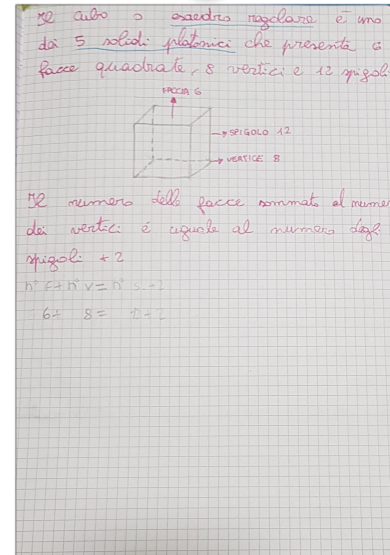 Il cubo o esaedro regolare è uno
dei 5 solidi platonici che presenta 6
facce quadrate, 8 vertici e 12 spigoli
FACCIA 6
SPIGOLO 12
VERTICE 8
Il numero delle facce sommato al numer
dei vertici è uguale al numero degli
spigoli + 2
n° f + n° v = n° s + 2
6+ 8 = 12+2